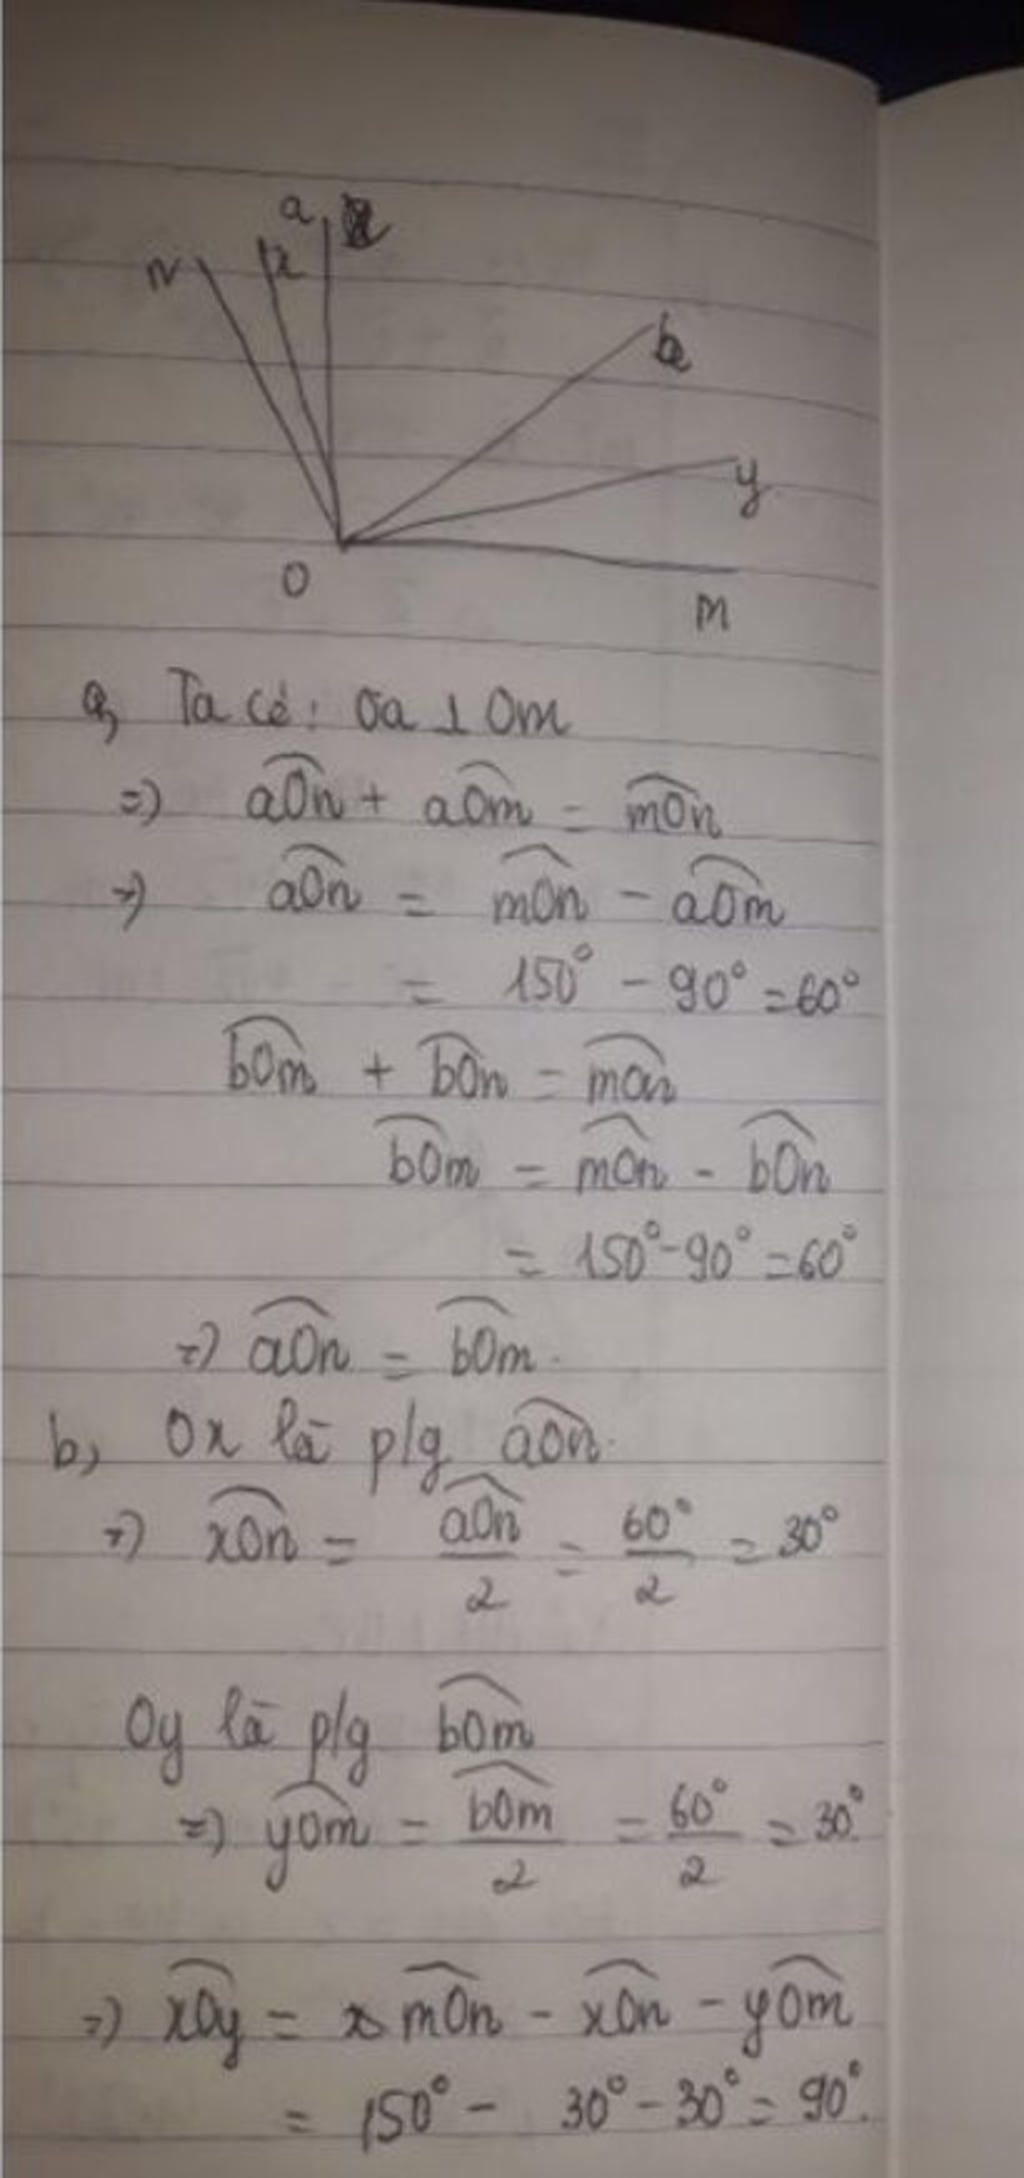 a
n x
b
y
O
m
a, Ta có: Oa ⊥ Om
=> aÔn + aÔm = mÔn
=> aÔn = mÔn - aÔm
= 150° - 90° = 60°
bÔm + bÔn = mÔn
bÔm = mÔn - bÔn
= 150° - 90° = 60°
=> aÔn = bÔm.
b, Ox là p/g aÔn.
=> xÔn = aÔn/2 = 60°/2 = 30°
Oy là p/g bÔm
=> yÔm = bÔm/2 = 60°/2 = 30°.
=> xÔy = mÔn - xÔn - yÔm
= 150° - 30° - 30° = 90°.